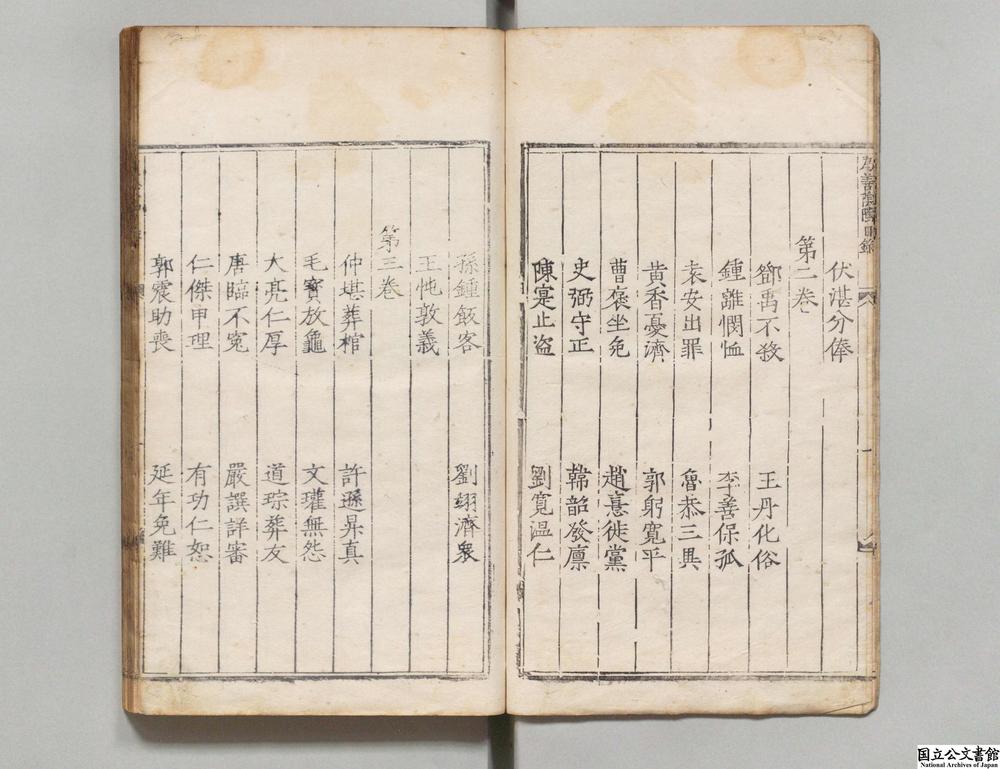 為善陰隲目錄
伏湛分俸
第二卷
鄧禹不殺 王丹化俗
鍾離憫恤 李善保孤
袁安出罪 魯恭三異
黃香憂濟 郭躬寬平
曹褒坐免 趙憙徙黨
史弼守正 韓韶發廩
陳寔止盜 劉寬温仁
孫鍾飯客 劉翊濟衆
王忳敦義
第三卷
仲堪葬棺 許遜昇真
毛寳放龜 文瓘無怨
大亮仁厚 道琮葬友
唐臨不寃 嚴譔詳審
仁傑申理 有功仁恕
郭震助喪 延年免難
国立公文書館
National Archives of Japan